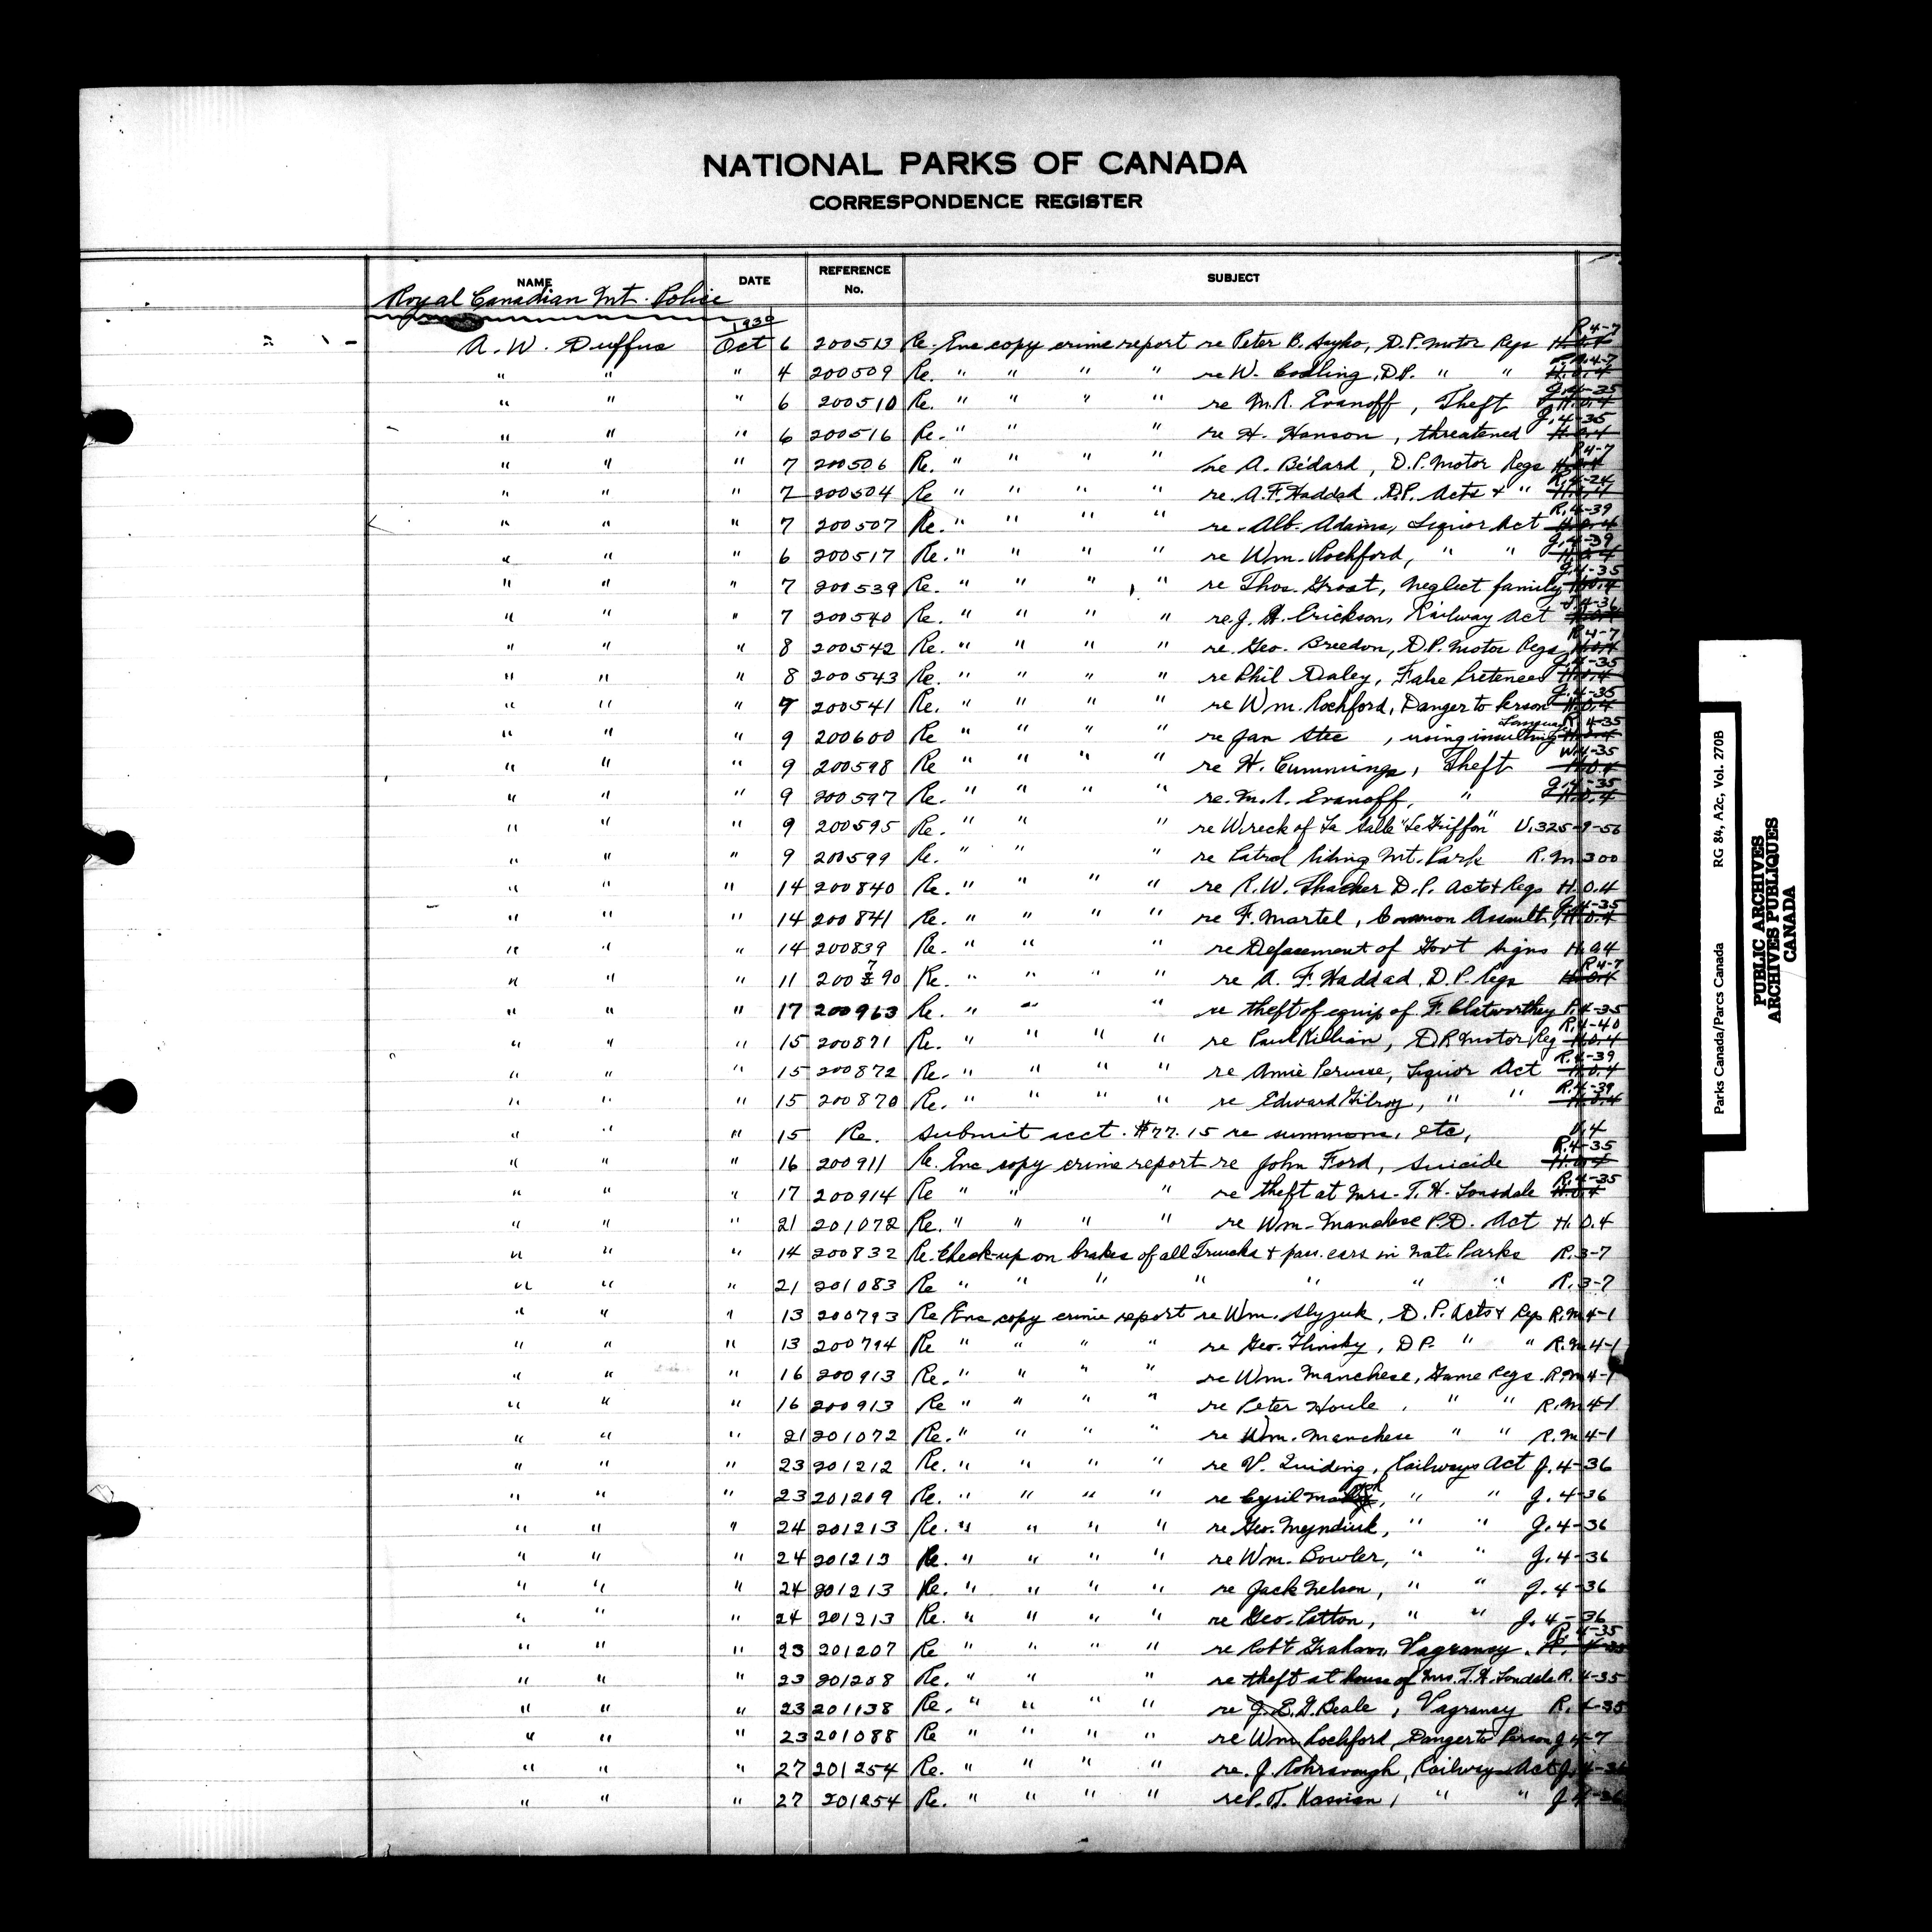 NATIONAL PARKS OF CANADA
CORRESPONDENCE REGISTER
NAME DATE REFERENCE No. SUBJECT
Royal Canadian Mt. Police
1930
A. W. Duffus Oct 6 200513 Re. Enc copy crime report re Peter B. D.P. Motor Regs H.O.4 R.4-7
" " " 4 200509 Re. " " " " re W. Codling, D.P. " " H.O.4 R.4-7
" " " 6 200510 Re. " " " " re M.R. Evanoff, Theft H.O.4 J.4-35
" " " 6 200516 Re. " " " re H. Hanson, threatened H.O.4 J.4-35
" " " 7 200506 Re. " " " " re A. Bédard, D.P. Motor Regs H.O.4 R4-7
" " " 7 200504 Re " " " " re. A.F. Haddad. D.P. Acts & " H.O.4 R.4-24
" " " 7 200507 Re. " " " " re. Alb. Adams, Liquor Act H.O.4 R.4-39
" " " 6 200517 Re. " " " " re Wm. Rochford, " " H.O.4 J.4-39
" " " 7 200539 Re. " " " " re Thos. Groat, Neglect family H.O.4 J.4-35
" " " 7 200540 Re. " " " " re J. H. Erickson, Railway Act H.O.4 J.4-36
" " " 8 200542 Re. " " " " re. Geo. Breedon, D.P. Motor Regs H.O.4 R4-7
" " " 8 200543 Re. " " " " re Phil Daley, False Pretences H.O.4 J.4-35
" " " 7 200541 Re. " " " " re Wm. Rochford, Danger to Person H.O.4 J.4-35
" " " 9 200600 Re " " " " re Jan Stec, using insulting Language H.O.4 R.4-35
" " " 9 200598 Re " " " " re H. Cummings, Theft H.O.4 W.4-35
" " " 9 200597 Re. " " " " re. M.R. Evanoff, " H.O.4 J.4-35
" " " 9 200595 Re. " " " re Wreck of La Salle "Le Griffon" U.325-9-56
" " " 9 200599 Re. " " " re Patrol Riding Mt. Park R.M 300
" " " 14 200840 Re. " " " " re R.W. Thacker D.P. Acts & Regs H.O.4
" " " 14 200841 Re. " " " " re F. Martel, Common Assault, H.O.4 J.4-35
" " " 14 200839 Re. " " " re Defacement of Govt Signs H.O4
" " " 11 200790 Re. " " " " re A. F. Haddad. D.P. Regs H.O.4 R4-7
" " " 17 200963 Re. " " " re theft of equip of F. Clatworthy P.4-35
" " " 15 200871 Re. " " " " re Paul Killian, D.P. Motor Reg H.O.4 R.4-40
" " " 15 200872 Re. " " " " re Amie Perusse, Liquor Act H.O.4 R.4-39
" " " 15 200870 Re. " " " " re Edward Gilroy, " " H.O.4 R.4-39
" " " 15 Re. Submit acct. $77.15 re summons, etc, U.4
" " " 16 200911 Re. Enc copy crime report re John Ford, Suicide H.O.4 R.4-35
" " " 17 200914 Re " " " re theft at Mrs. T. H. Lonsdale H.O.4 R.4-35
" " " 21 201072 Re. " " " " re Wm. Manchese P.D. Act H.O.4
" " " 14 200832 Re. Check-up on brakes of all Trucks & pass. cars in Natl Parks R.3-7
" " " 21 201083 Re " " " " " " " R.3-7
" " " 13 200793 Re Enc copy crime report re Wm. Slyzuk, D.P. Acts & Regs R.M4-1
" " " 13 200794 Re " " " " re Geo. Flinsky, D.P. " " R.M4-1
" " " 16 200913 Re. " " " " re Wm. Manchese, Game Regs. R.M4-1
" " " 16 200913 Re " " " " re Peter Houle, " " R.M4-1
" " " 21 201072 Re. " " " " re Wm. Manchese " " R.M4-1
" " " 23 201212 Re. " " " " re V. Quiding, Railways Act J.4-36
" " " 23 201209 Re. " " " " re Cyril " " J.4-36
" " " 24 201213 Re. " " " " re Geo. " " J.4-36
" " " 24 201213 Re. " " " " re Wm. Bowler, " " J.4-36
" " " 24 201213 Re. " " " " re Jack Nelson, " " J.4-36
" " " 24 201213 Re. " " " " re Geo. Patton, " " J.4-36
" " " 23 201207 Re " " " " re Robt Graham, Vagrancy. R.4-35
" " " 23 201208 Re. " " " re theft at house of Mrs. T.H. Lonsdale R.4-35
" " " 23 201138 Re. " " " " re J. E. G. Beale, Vagrancy R.4-35
" " " 23 201088 Re " " " " re Wm Rochford, Danger to Person J 4-7
" " " 27 201254 Re. " " " " re. J. Rohrabough, Railways Act J.4-36
" " " 27 201254 Re. " " " " re P. T. Kassian, " " J 4-36
Parks Canada/Parcs Canada RG 84, A2c, Vol. 270B
PUBLIC ARCHIVES
ARCHIVES PUBLIQUES
CANADA